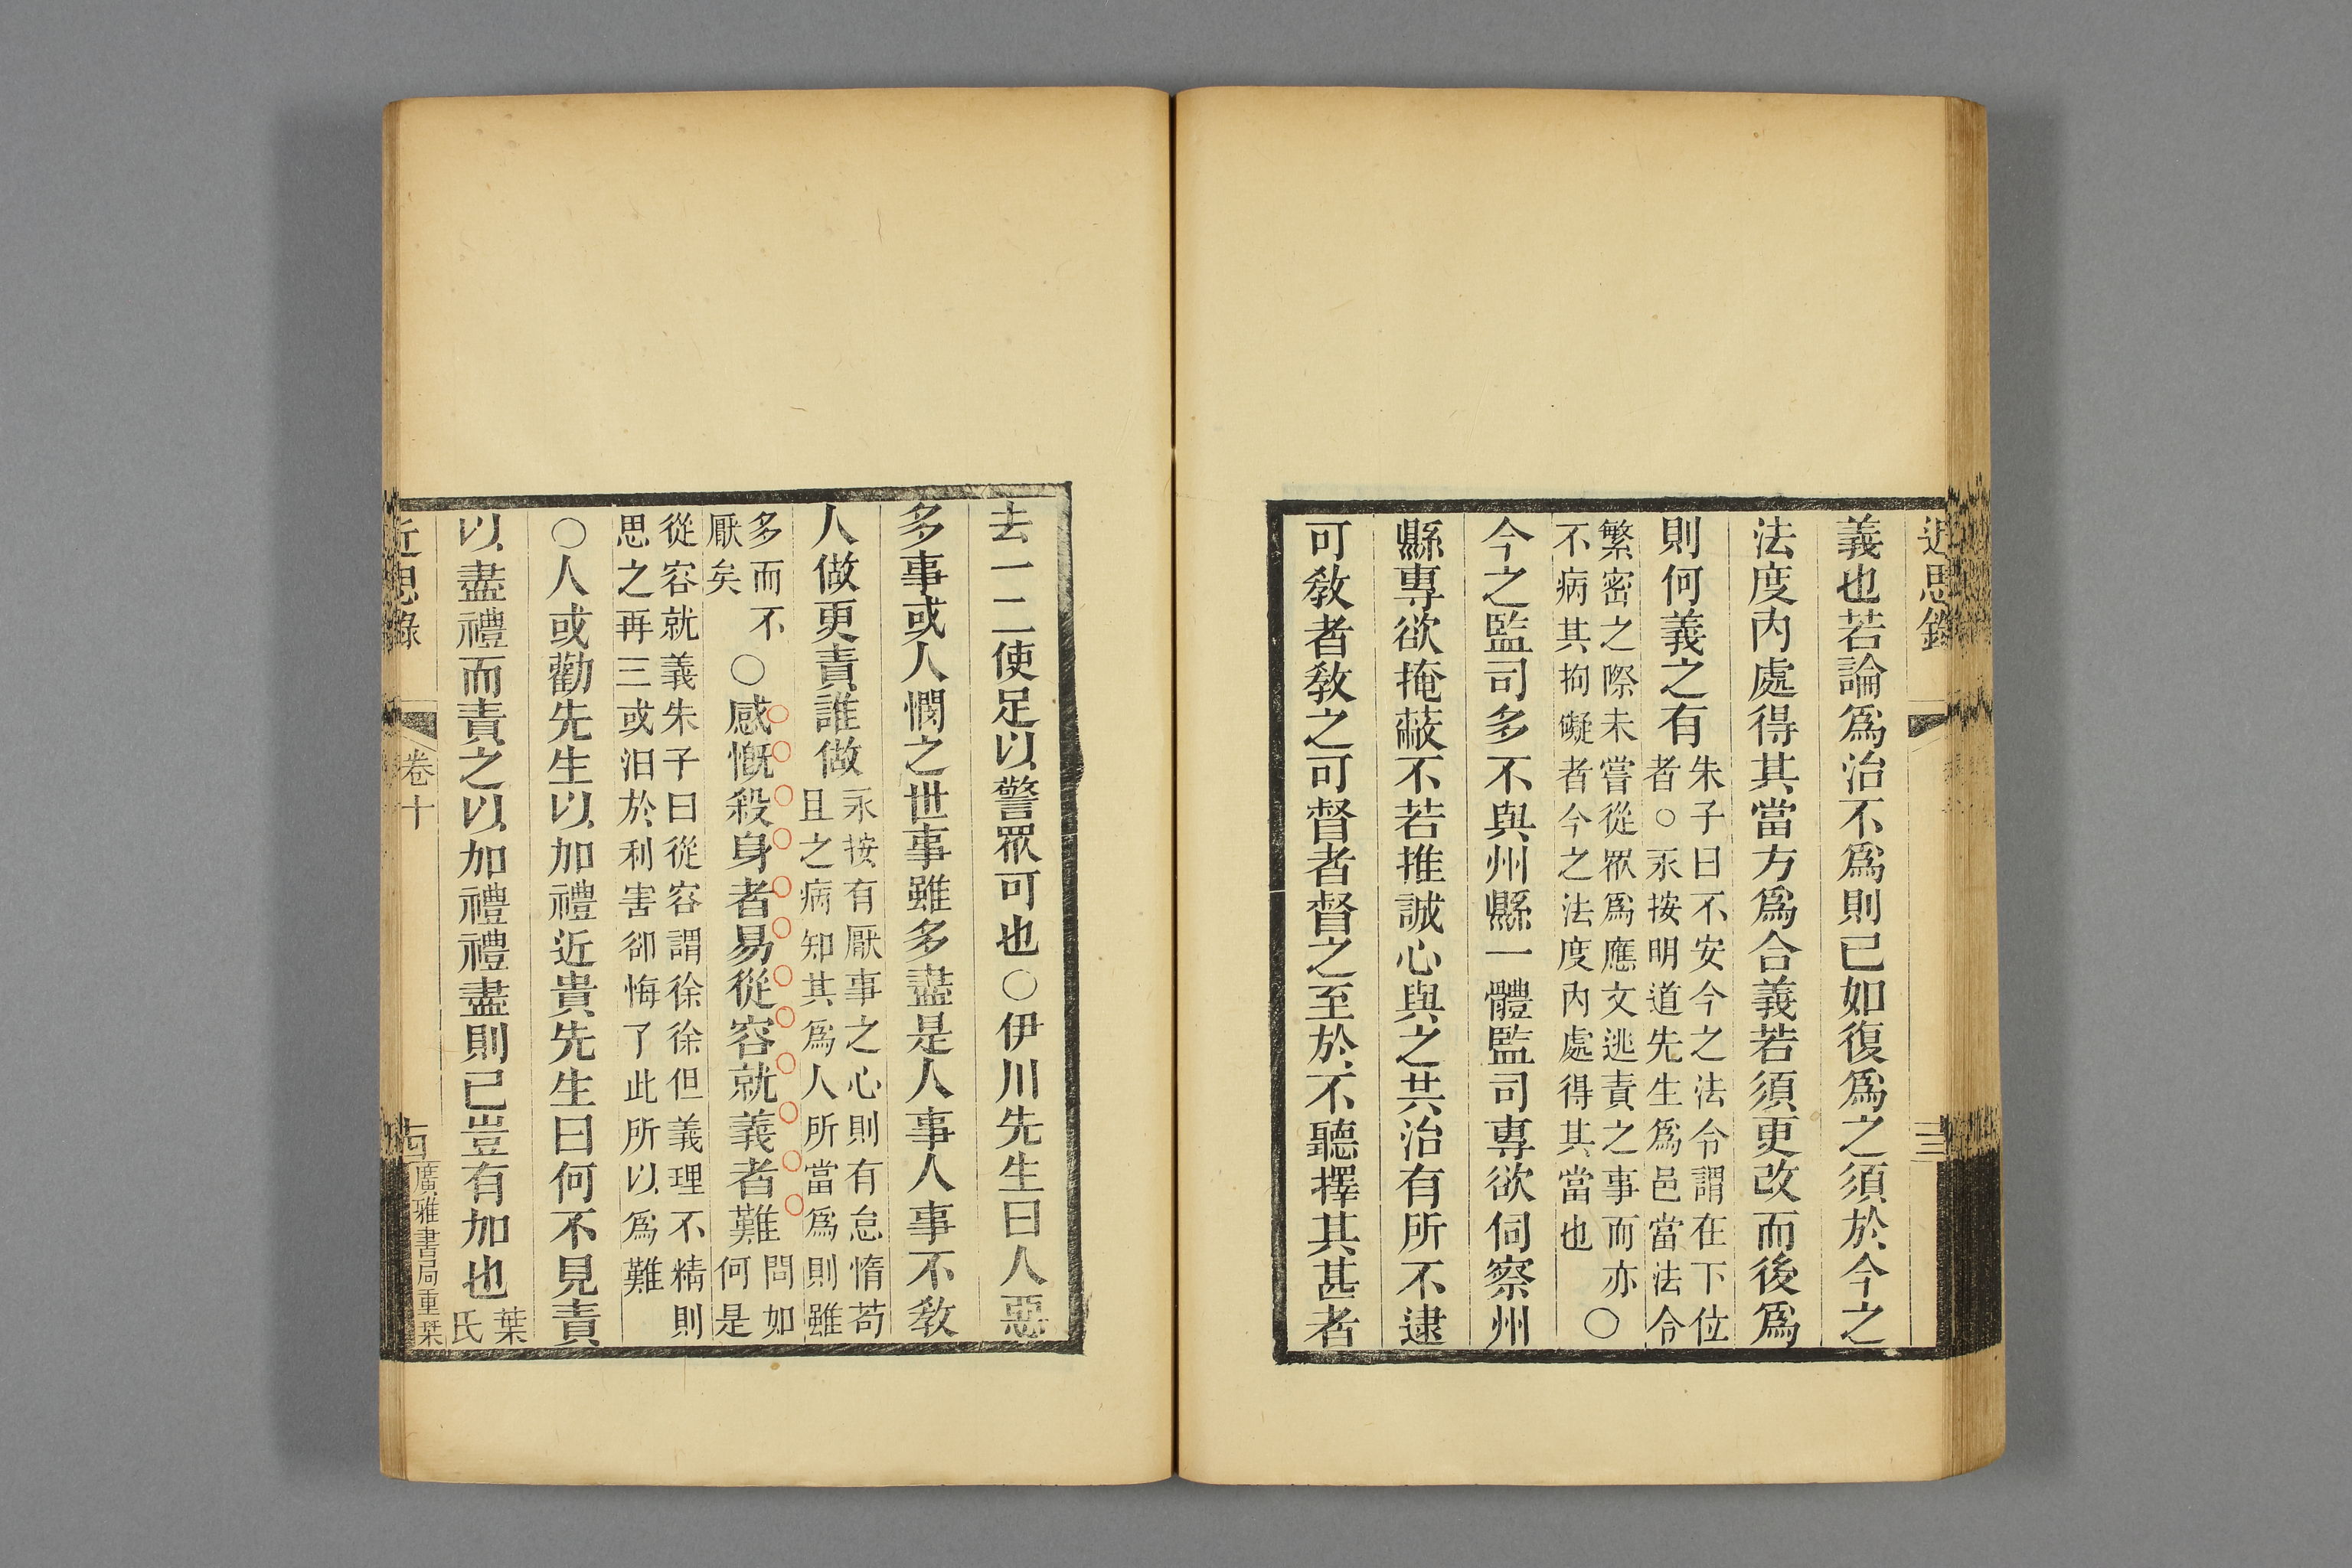 近思錄
三
義也若論爲治不爲則已如復爲之須於今之
法度內處得其當方爲合義若須更改而後爲
則何義之有
朱子曰不安今之法令謂在下位
者○永按明道先生爲邑當法令
繁密之際未嘗從眾爲應文逃責之事而亦
不病其拘礙者今之法度內處得其當也
○
今之監司多不與州縣一體監司專欲伺察州
縣專欲掩蔽不若推誠心與之共治有所不逮
可敎者敎之可督者督之至於不聽擇其甚者
去一二使足以警眾可也○伊川先生曰人惡
多事或人憫之世事雖多盡是人事人事不敎
人做更責誰做
永按有厭事之心則有怠惰苟
且之病知其爲人所當爲則雖
多而不
厭矣
○感慨殺身者易從容就義者難
問如
何是
從容就義朱子曰從容謂徐徐但義理不精則
思之再三或汩於利害卻悔了此所以爲難
○人或勸先生以加禮近貴先生曰何不見責
以盡禮而責之以加禮禮盡則已豈有加也
葉
氏
近思錄
卷十
古
廣雅書局重栞